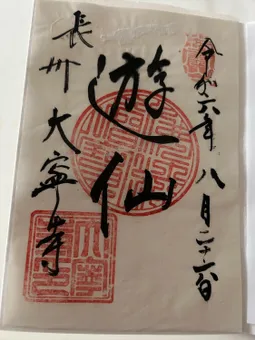 令和六年 八月二十一日
遊仙
長州 大寧寺